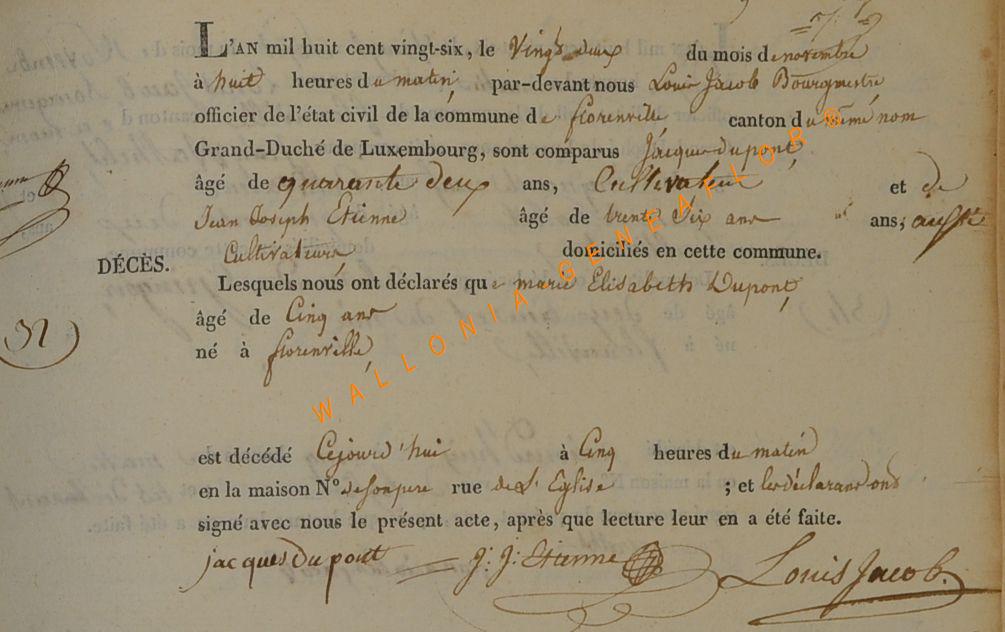 L'AN mil huit cent vingt-six, le Vingt deux du mois de novembre
à huit heures du matin, par-devant nous Louis Jacob Bourgmestre
officier de l'état civil de la commune de florenville canton du même nom
Grand-Duché de Luxembourg, sont comparus Jacques dupont,
âgé de quarante deux ans, Cultivateur et de
Jean Joseph Etienne âgé de trente Six ans ans; aussi
Cultivateurs domiciliés en cette commune.
DÉCÈS.
Lesquels nous ont déclarés que marie Elisabeth Dupont,
âgé de Cinq ans
32
né à florenville,
est décédé Cejourd'hui à Cinq heures du matin
en la maison N° de son pere rue de L'Eglise ; et les déclarans ont
signé avec nous le présent acte, après que lecture leur en a été faite.
jacques dupont J. J. Etienne Louis Jacob.
WALLONIA GENEALOB